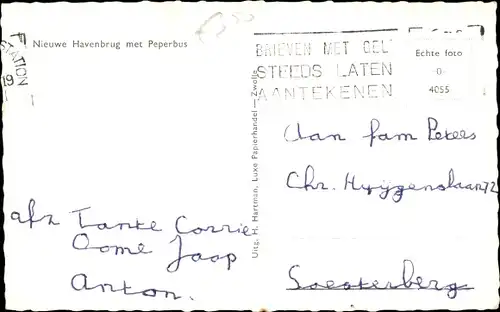 Nieuwe Havenbrug met Peperbus
STATION
19
BRIEVEN MET GEL
STEEDS LATEN
AANTEKENEN
Echte foto
-0-
4055
Uitg. H. Hartman, Luxe Papierhandel — Zwolle
Aan fam Peters
Chr. Huijgenslaan 72
Soesterberg
afz Tante Corrie
Oome Jaap
Anton.